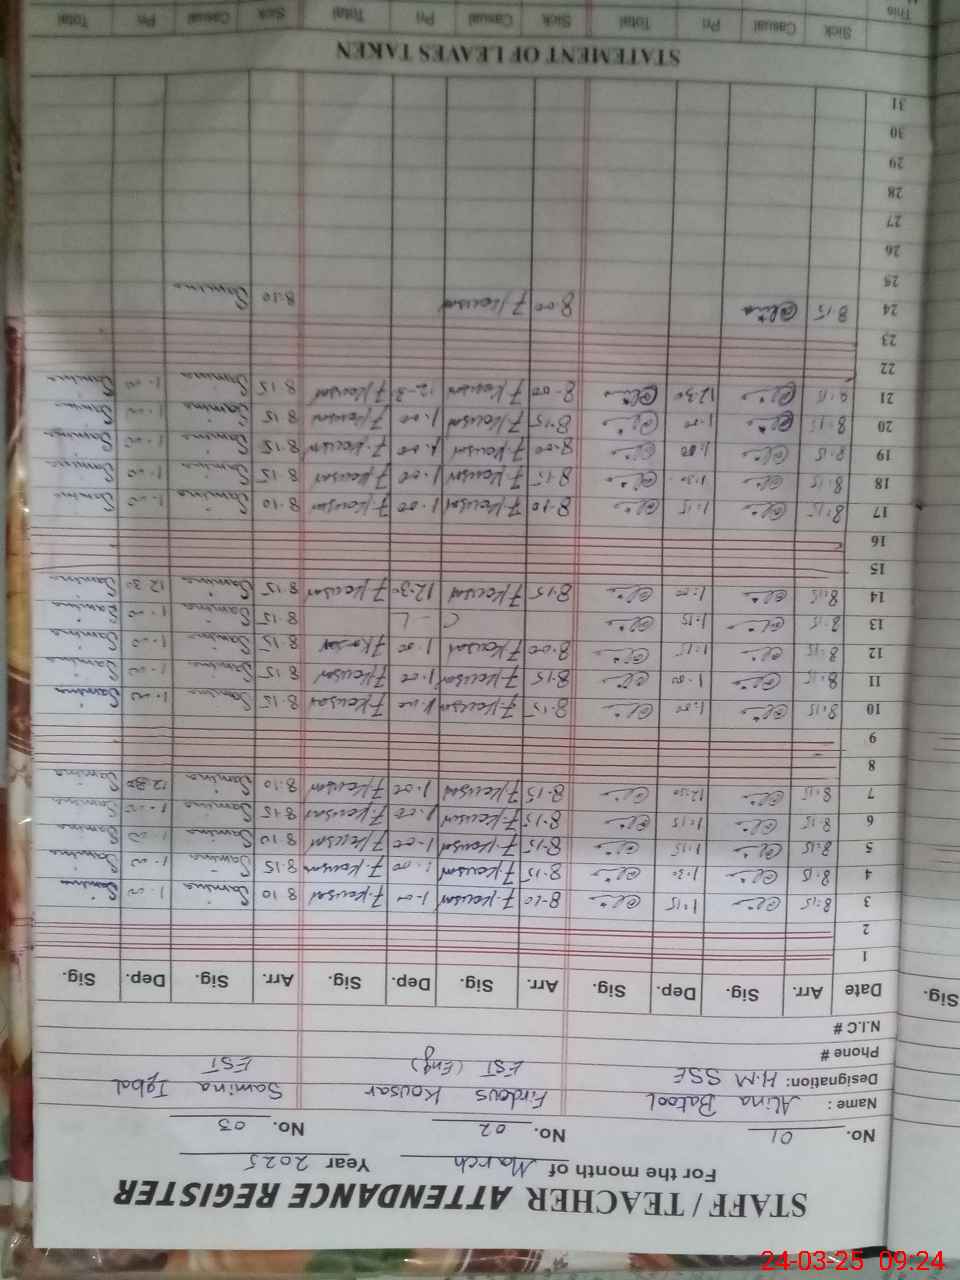 STAFF / TEACHER ATTENDANCE REGISTER
For the month of March Year 2025
No. 01 No. 02 No. 03
Name: Alina Batool Firdous Kousar Samina Iqbal
Designation: H.M SSE EST (Eng) EST
Phone #
N.I.C #
Date Arr. Sig. Dep. Sig. Arr. Sig. Dep. Sig. Arr. Sig. Dep. Sig.
1
2
3 8:15 1:15 8-10 F.kousar 1.00 F/kousar 8 10 Samina 1.00 Samina
4 8:15 1:30 8.15 F.kousar 1:00 F/kousar 8.15 Samina 1.00 Samina
5 8:15 1:15 8.15 F.kousar 1.00 F/kousar 8 10 Samina 1.00 Samina
6 8:15 1:15 8.15 F/kousar 1.00 F/kousar 8 15 Samina 1.00 Samina
7 8:15 12:30 8.15 F/kousar 1.00 F/kousar 8.10 Samina 12.30 Samina
8
9
10 8:15 1:00 8.15 F.kousar 1.00 F.kousar 8.15 Samina 1.00 Samina
11 8:15 1:00 8.15 F/kousar 1.00 F/kousar 8 15 Samina 1.00 Samina
12 8:15 1:15 8.00 F/kousar 1.00 F/kousar 8.15 Samina 1.00 Samina
13 8:15 1:15 C - L 8.15 Samina 1.00 Samina
14 8:15 1:00 8.15 F/kousar 12.30 F/kousar 8 15 Samina 12 30 Samina
15
16
17 8:15 1:15 8.10 F/kousar 1.00 F/kousar 8.10 Samina 1.00 Samina
18 8:15 1:30 8.15 F/kousar 1.00 F/kousar 8 15 Samina 1.00 Samina
19 8:15 1:00 8.00 F.kousar 1.00 F.kousar 8.15 Samina 1.00 Samina
20 8:15 1:00 8.15 F/kousar 1.00 F/kousar 8 15 Samina 1.00 Samina
21 8:15 12:30 8.00 F/kousar 12-3 F/kousar 8 15 Samina 1.00 Samina
22
23
24 8:15 8.00 F/kousar 8.10 Samina
25
26
27
28
29
30
31
STATEMENT OF LEAVES TAKEN
Sick Casual Pri Total Sick Casual Pri Total Sick Casual Pri Total
This
Sig.
24-03-25 09:24